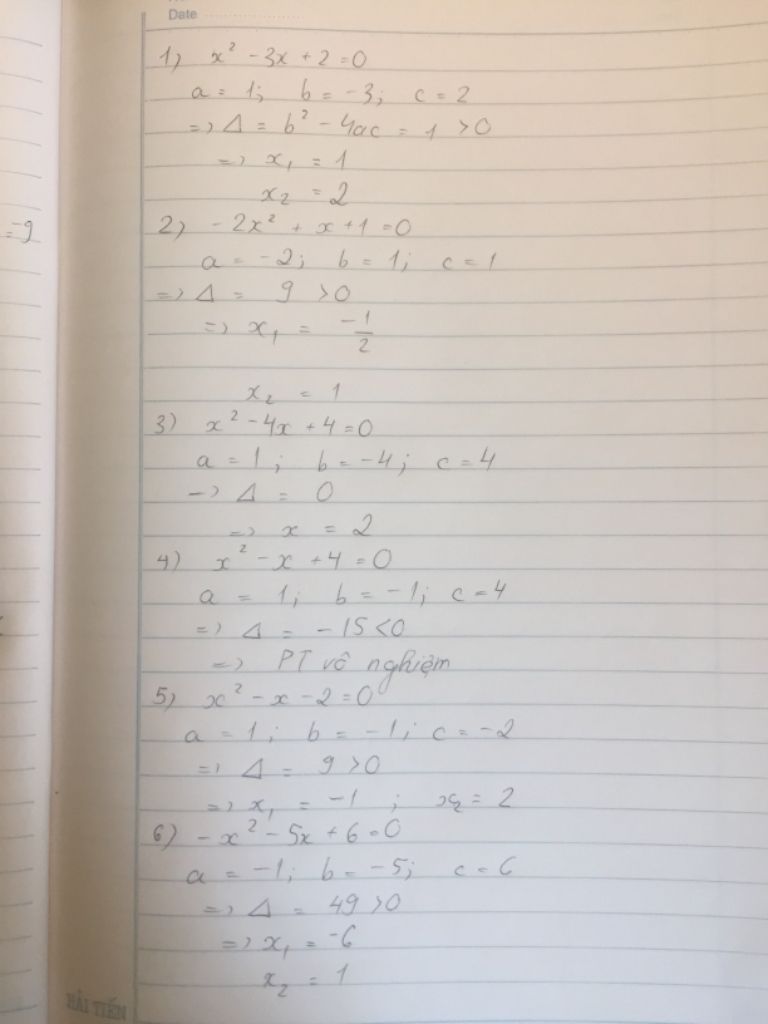 Date
1) x² - 3x + 2 = 0
a = 1; b = -3; c = 2
=> Δ = b² - 4ac = 1 > 0
=> x₁ = 1
x₂ = 2
= -9
2) - 2x² + x + 1 = 0
a = -2; b = 1; c = 1
=> Δ = 9 > 0
=> x₁ = -1/2
x₂ = 1
3) x² - 4x + 4 = 0
a = 1; b = -4; c = 4
-> Δ = 0
=> x = 2
4) x² - x + 4 = 0
a = 1; b = -1; c = 4
=> Δ = -15 < 0
=> PT vô nghiệm
5) x² - x - 2 = 0
a = 1; b = -1; c = -2
=> Δ = 9 > 0
=> x₁ = -1 ; x₂ = 2
6) -x² - 5x + 6 = 0
a = -1; b = -5; c = 6
=> Δ = 49 > 0
=> x₁ = -6
x₂ = 1
HẢI TIẾN